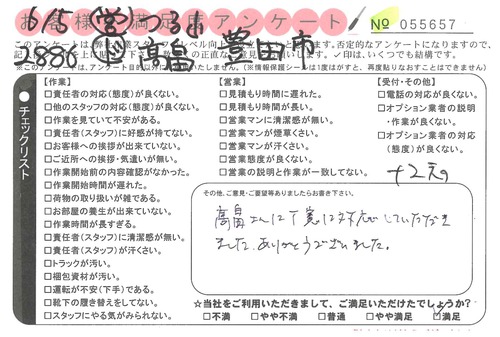 6/5 (営) つるみ
お客様満足度アンケート
No 055657
2880 高畠 豊田市
※このアンケートは、アンケート目的以外に
(※情報保護シールは1度はがすと、再度貼りなおすことはできません)
チェックリスト
【作業】
□責任者の対応(態度)が良くない。
□他のスタッフの対応(態度)が良くない。
□作業を見ていて不安がある。
□責任者(スタッフ)に好感が持てない。
□お客様への挨拶が出来ていない。
□ご近所への挨拶・気遣いが無い。
□作業開始前の内容確認がなかった。
□作業開始時間が遅れた。
□荷物の取り扱いが雑である。
□お部屋の養生が出来ていない。
□作業時間が長すぎる。
□責任者(スタッフ)に清潔感が無い。
□責任者(スタッフ)が汗くさい。
□トラックが汚い。
□梱包資材が汚い。
□運転が不安(下手)である。
□靴下の履き替えをしてない。
□スタッフにやる気がみられない。
【営業】
□見積もり時間に遅れた。
□見積もり時間が長い。
□営業マンに清潔感が無い。
□営業マンが煙草くさい。
□営業マンが汗くさい。
□営業態度が良くない。
□営業の説明と作業が一致してない。
【受付・その他】
□電話の対応が良くない。
□オプション業者の説明
・作業が良くない。
□オプション業者の対応
(態度)が良くない。
その他、ご意見・ご要望等ありましたらお書き下さい。
高畠さんには丁寧に対応していただき
ました。ありがとうございました。
☆当社をご利用いただきまして、ご満足いただけたでしょうか?
□不満 □やや不満 □普通 □やや満足 □満足